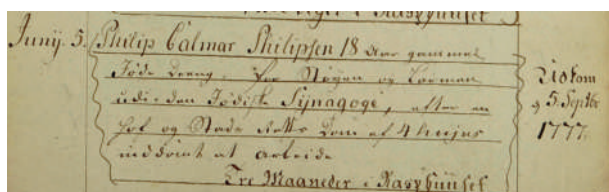 i Rasphuuset
Junij. 5. Philip Calmar Philipsen 18 Aar gammel
Jøde Dreng. For Støyen og Larmen
udi den Jødiske Synagoge, efter en
Hof og Stads Retts Dom af 4 hujus
inddømt at arbeide
Tre Maaneder i Rasphuuset
Udkom
d 5. Septbr
1777.